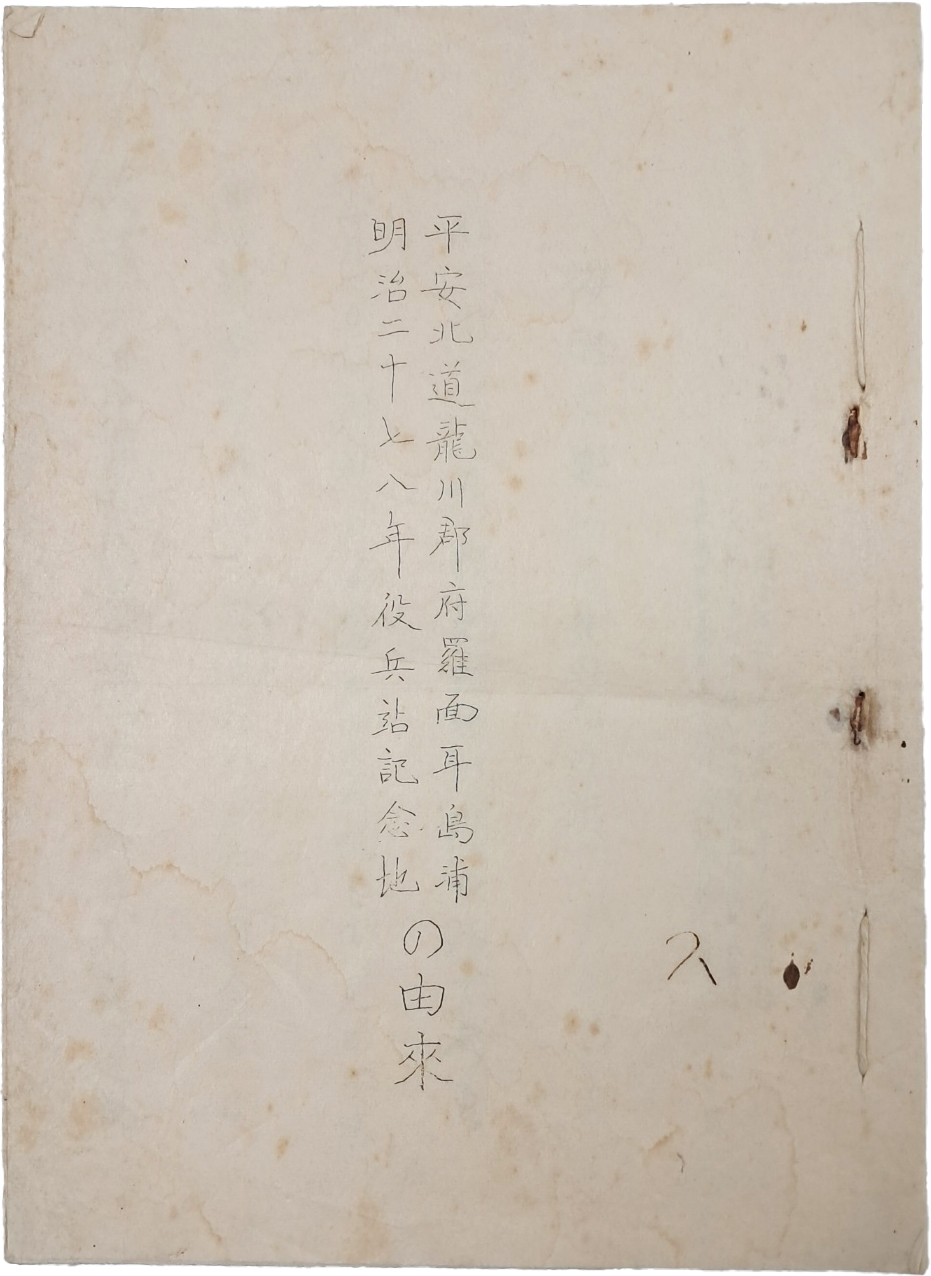 平安北道龍川郡府羅面耳島浦
明治二十七八年役兵站記念地
の由來
入